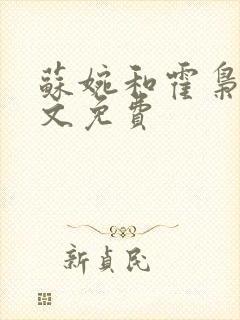 蘇婉和霍梟
文免費
新貞民